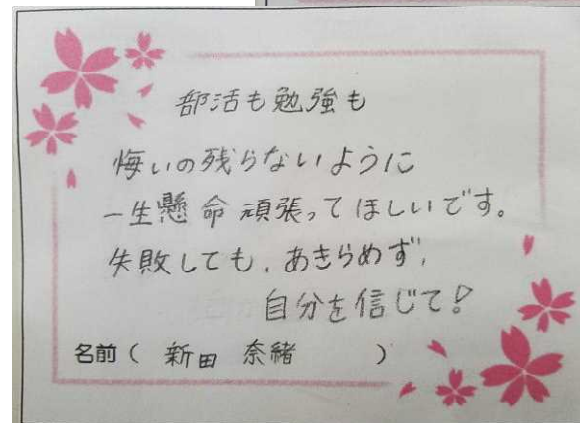 部活も勉強も
悔いの残らないように
一生懸命頑張ってほしいです。
失敗しても、あきらめず、
自分を信じて!
名前( 新田 奈緒 )